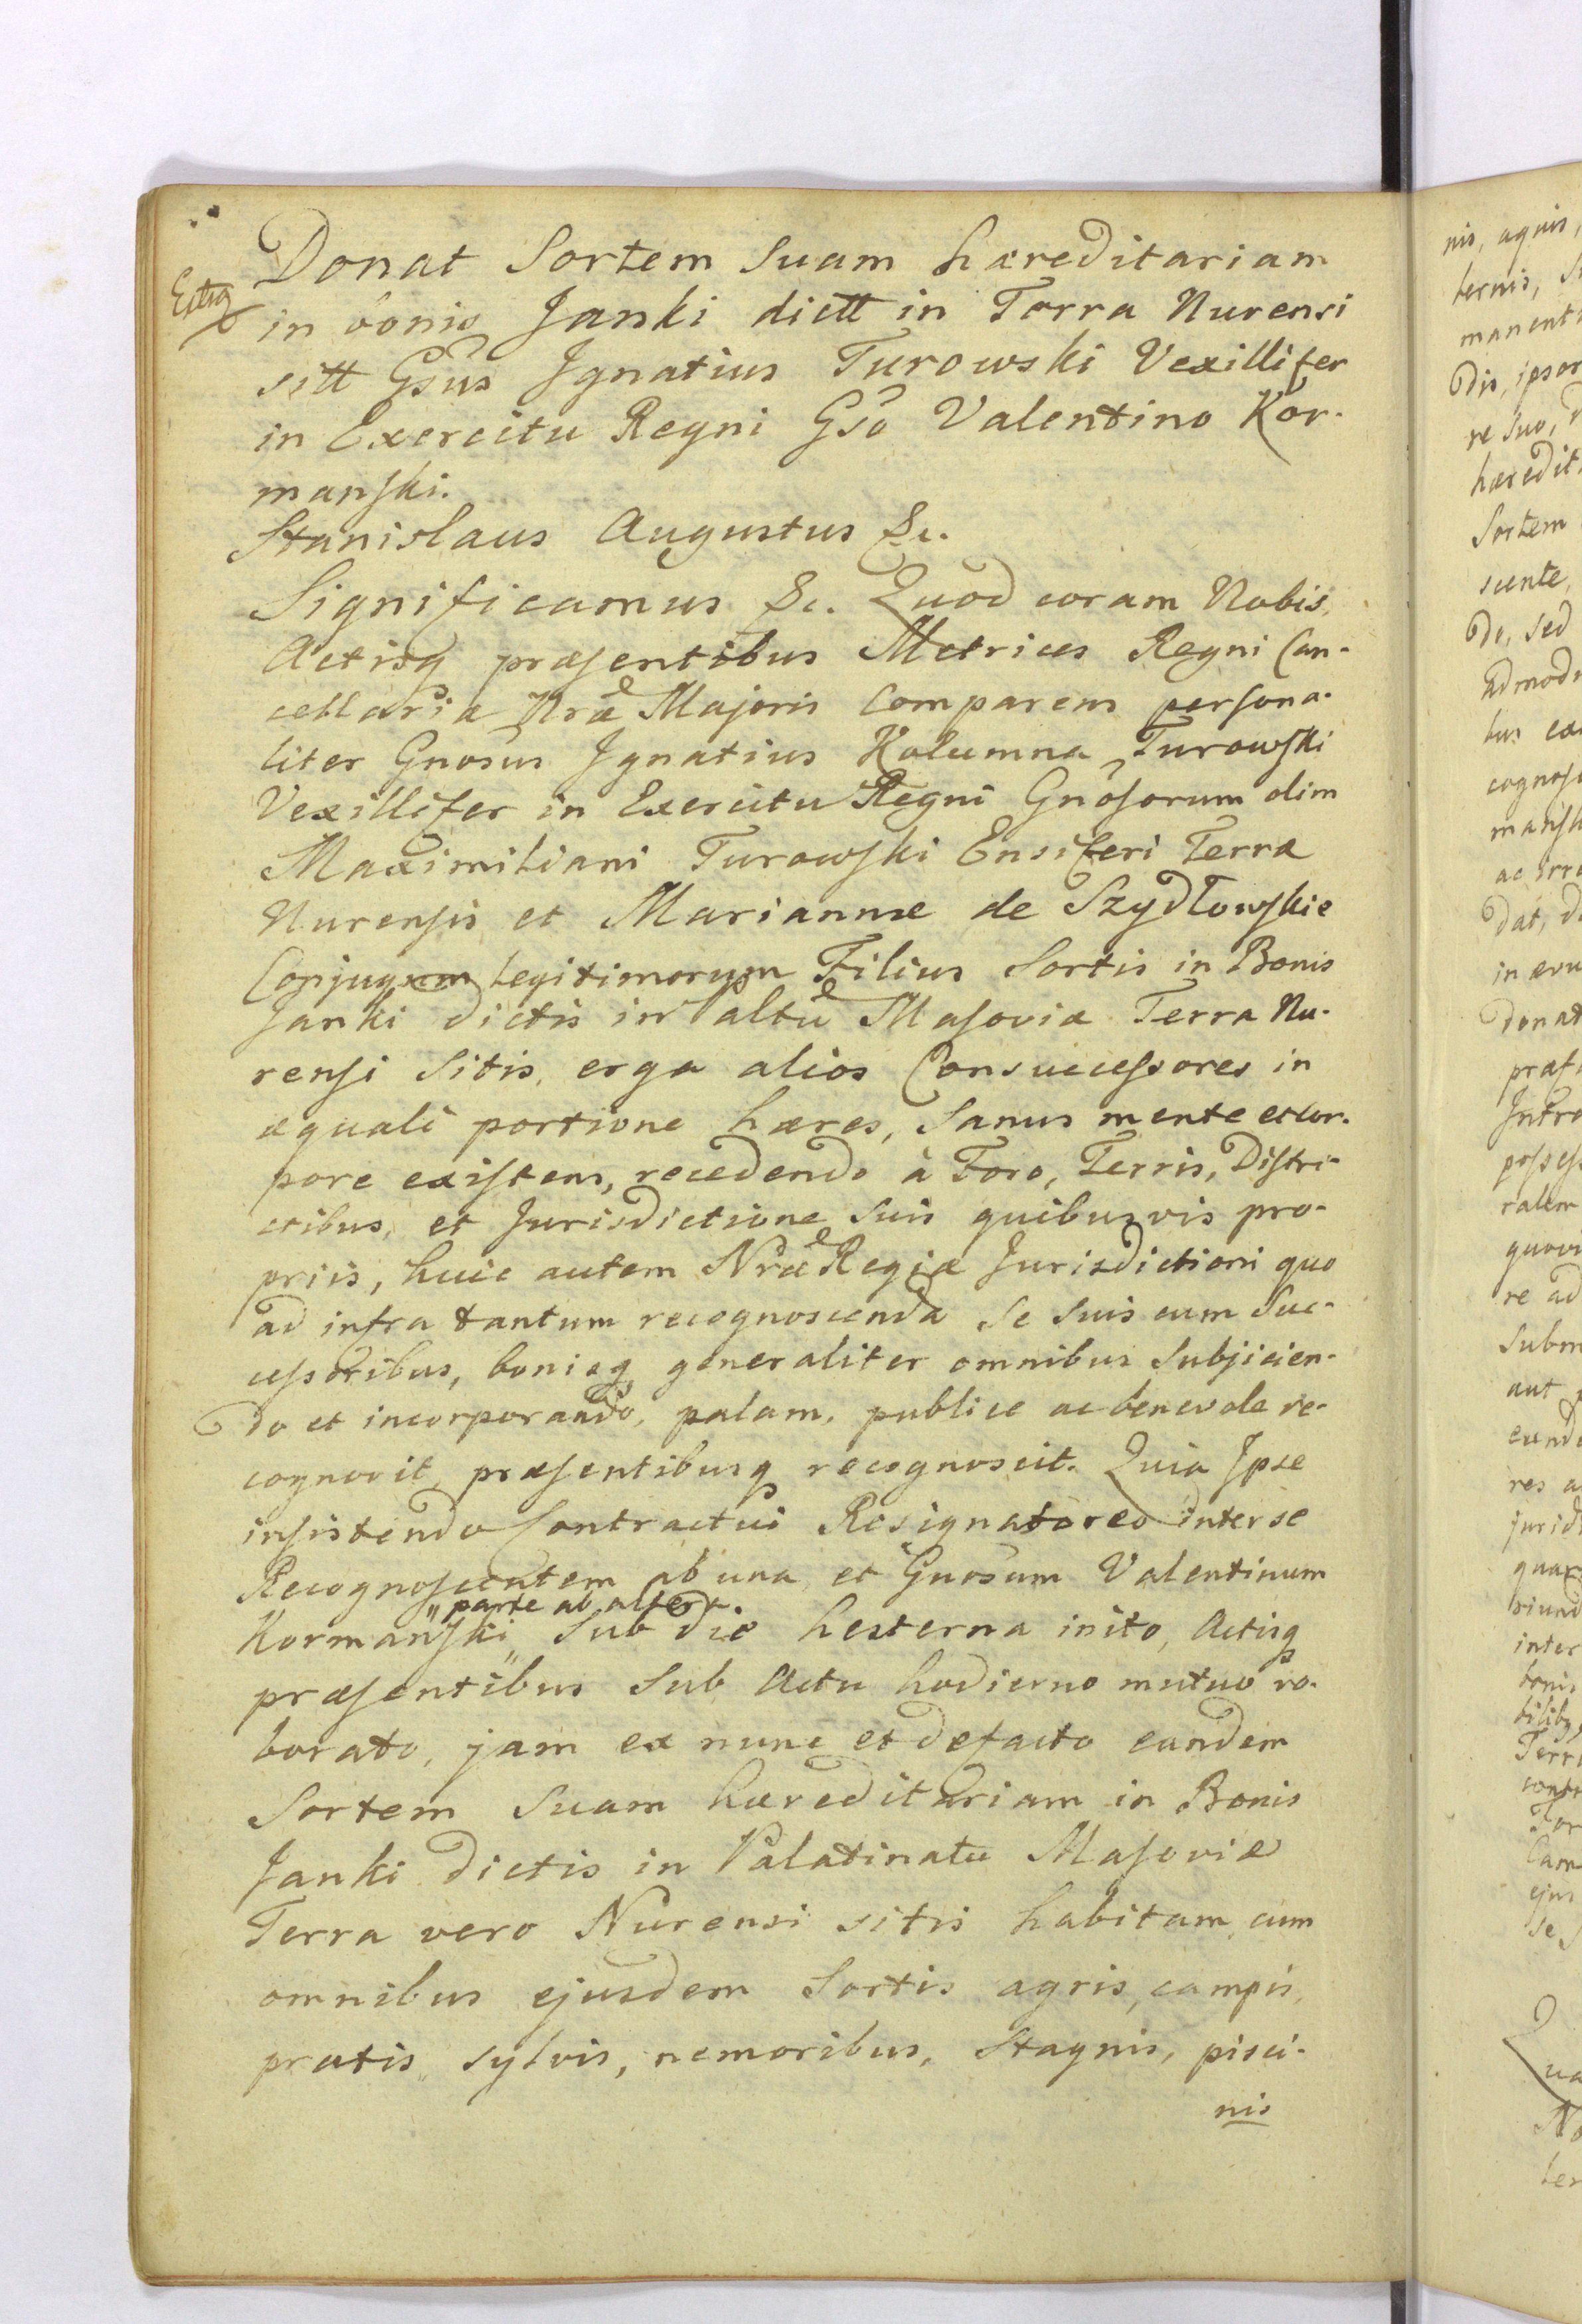 Donat Sortem Suam hæreditariam
in bonis Janki dictt in Terra Nurensi
sitt Gsus Jgnatius Turowski Vexillifer
in Exercitu Regni Gso Valentino Kor-
manski.
Stanislaus Augustus &c.
Significamus &c. Quod coram Nobis,
Actisq præsentibus Metrices Regni Can-
cellariæ Nræ Majoris Comparens persona-
liter Gnosus Jgnatius Kolumna Turowski
Vexillifer in Exercitu Regni Gnosorum olim
Maximiliani Turowski Ensiferi Terræ
Nurensis et Mariannæ de Szydłowskie
Conjugum Legitimorum Filius Sortis in Bonis
Janki dictis in Paltu Masoviæ Terra Nu-
rensi Sitis, erga alios Consuccessores in
æquali portione hæres, Sanus mente et cor-
pore existens, recedendo à Foro, Terris, Distri-
ctibus, et Jurisdictione Suis quibusvis pro-
priis, huic autem Nræ Regiæ Jurisdictioni quo
ad infra tantum recognoscenda Se Suis cum Suc-
cessoribus, bonisq generaliter omnibus Subjicien-
do et incorporando, palam, publice ac benevole re-
cognovit, præsentibusq recognoscit. Quia Jpse
insistendo Contractui Resignatoreo inter se
Recognoscentem ab una, et Gnosum Valentinum
Kormanski "parte ab altera" Sub die hesterna inito, Actisq
præsentibus Sub Actu hodierno mutuo ro-
borato, jam ex nunc et defacto eandem
Sortem Suam hæreditariam in Bonis
Janki dictis in Palatinatu Masoviæ
Terra vero Nurensi sitis habitam, cum
omnibus ejusdem Sortis agris, campis,
pratis, sylvis, nemoribus, Stagnis, pisci-
nis
nis, aquis,
manent
re Suo,
hæredit
Sortem
de, sed
dat,
donat
ralem
re ad
aut
res a
inter
bonis
ejus